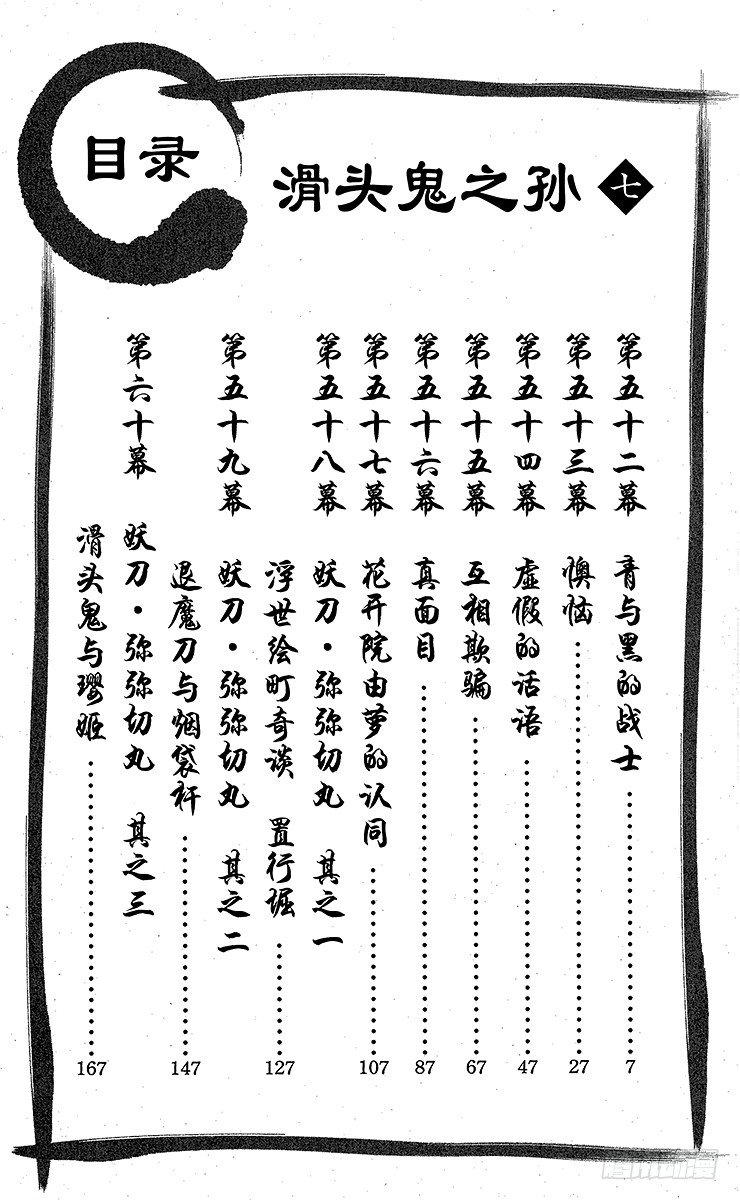 目录
滑头鬼之孙 七
第五十二幕 青与黑的战士 7
第五十三幕 懊恼 27
第五十四幕 虚假的话语 47
第五十五幕 互相欺骗 67
第五十六幕 真面目 87
第五十七幕 花开院由萝的认同 107
第五十八幕 妖刀·弥弥切丸 其之一
浮世绘町奇谈 置行堀 127
第五十九幕 妖刀·弥弥切丸 其之二
退魔刀与烟袋杆 147
第六十幕 妖刀·弥弥切丸 其之三
滑头鬼与璎姬 167